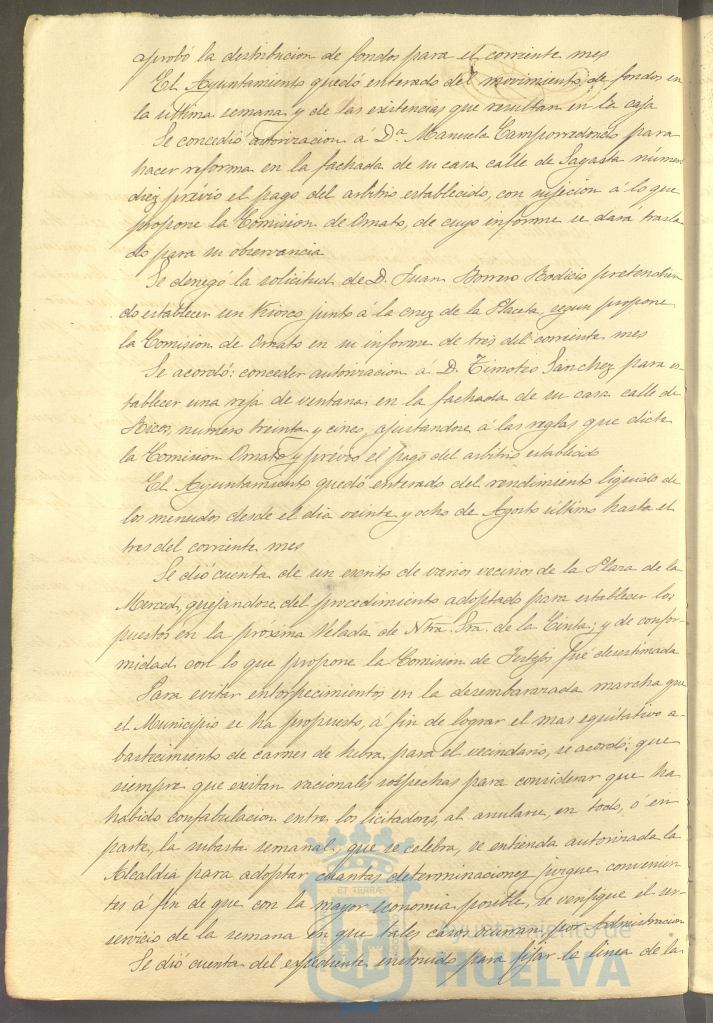 aprobó la distribucion de fondos para el corriente mes
El Ayuntamiento quedó enterado del movimiento de fondos en
la ultima semana y de las existencias que resultan en la caja
Se concedió autorizacion á Dª. Manuela Camporredondo para
hacer reforma en la fachada de su casa calle de Sagasta número
diez prévio el pago del arbitrio establecido, con sujecion á lo que
propone la Comision de Ornato, de cuyo informe se dará trasla
do para su observancia
Se denegó la solicitud de D. Juan Borrero Rodicio pretendien
do establecer un Kiosco junto á la cruz de la Placeta, segun propone
la Comision de Ornato en su informe de tres del corriente mes
Se acordó: conceder autorizacion á D. Timoteo Sanchez para es
tablecer una reja de ventana en la fachada de su casa calle de
Ricos, numero treinta y cinco, ajustandose á las reglas que dicte
la Comision Ornato y prévio el pago del arbitrio establecido
El Ayuntamiento quedó enterado del rendimiento liquido de
los menudos desde el dia veinte y ocho de Agosto último hasta el
tres del corriente mes
Se dió cuenta de un escrito de varios vecinos de la Plaza de la
Merced, quejandose del procedimiento adoptado para establecer los
puestos en la próxima Velada de Ntra. Sra. de la Cinta; y de confor-
midad con lo que propone la Comision de Festejos fué desestimada
Para evitar entorpecimientos en la desembarazada marcha que
el Municipio se ha propuesto, á fin de lograr el mas equitativo a-
bastecimiento de carnes de hebra para el vecindario, se acordó: que
siempre que existan racionales sospechas para considerar que ha
habido confabulacion entre los licitadores, al anularse, en todo, ó en
parte, la subasta semanal, que se celebra, se entienda autorizada la
Alcaldia para adoptar cuantas determinaciones juzgue convenien
tes á fin de que con la mayor economia posible, se verifique el ser-
servicio de la semana en que tales casos ocurran por Administracion
Se dió cuenta del expediente instruido para fijar la linea de la
ET TERRÆ
Ayuntamiento de
HUELVA